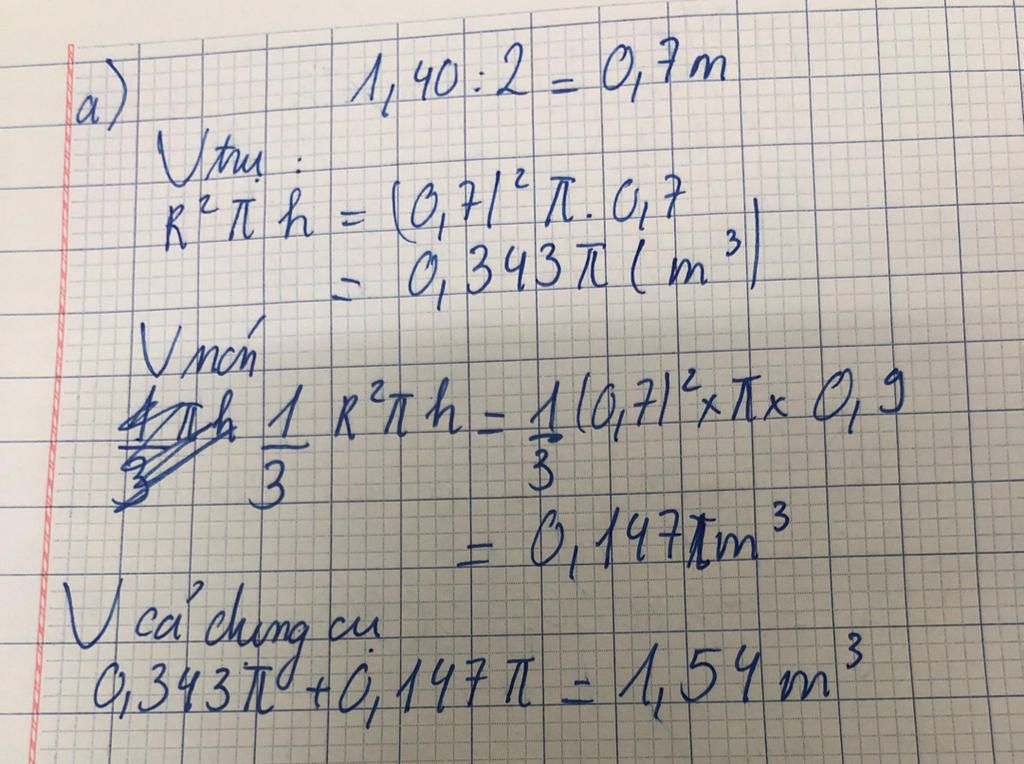 a) 1,40 : 2 = 0,7m
V trụ :
R² π h = (0,7)² π . 0,7
= 0,343π (m³)
V nón
1/3 R² π h = 1/3 (0,7)² x π x 0,9
= 0,147πm³
V cả dụng cụ
0,343π + 0,147π = 1,54 m³